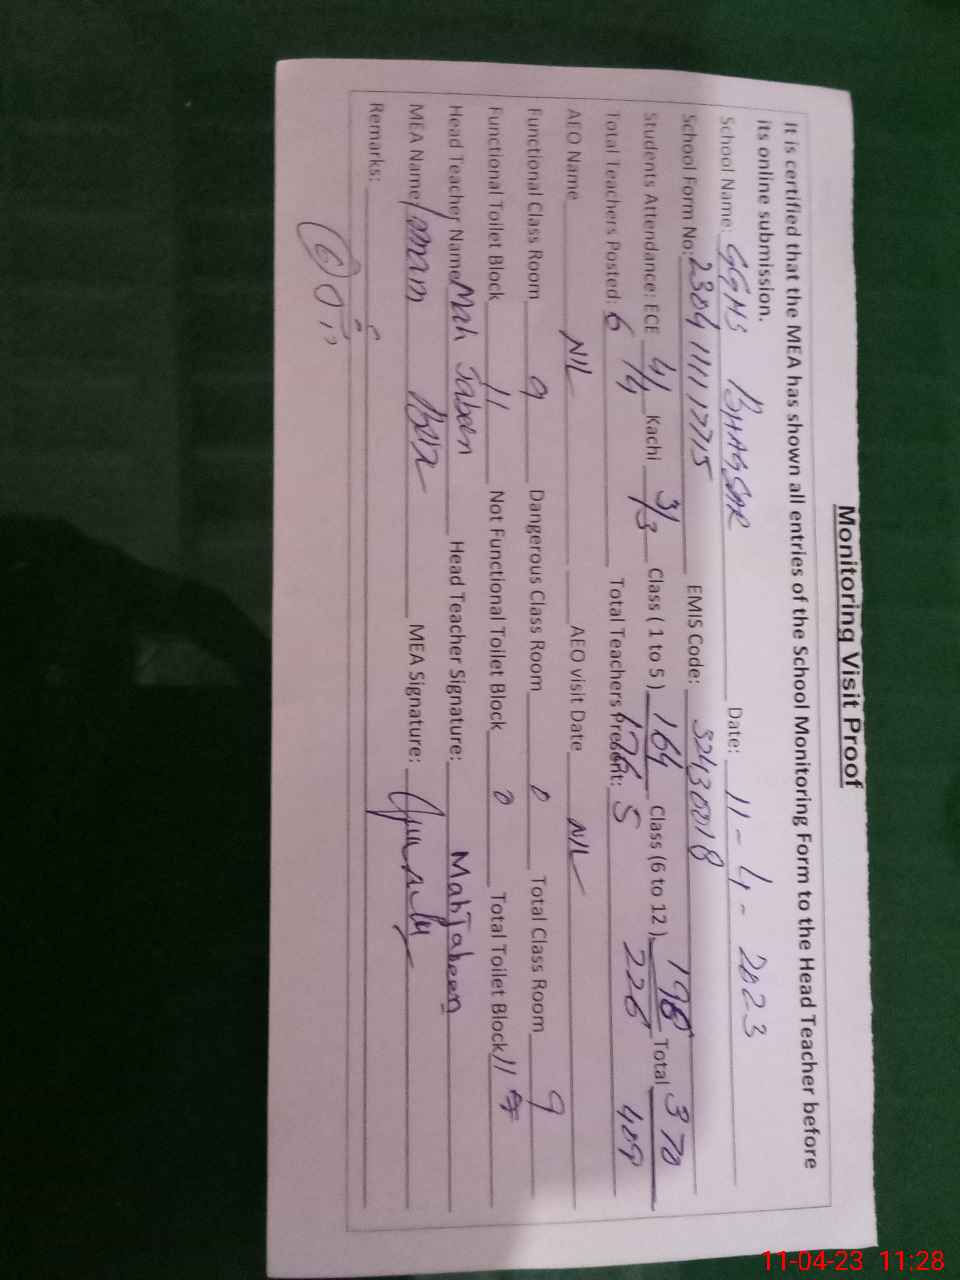 Monitoring Visit Proof
It is certified that the MEA has shown all entries of the School Monitoring Form to the Head Teacher before
its online submission.
School Name: GGMS BHAGSAR Date: 11-4-2023
School Form No: 2304111117715 EMIS Code: 32430018
Students Attendance: ECE 4/4 Kachi 3/3 Class ( 1 to 5 ) 164 Class (6 to 12 ) 198 Total 370
176 226 409
Total Teachers Posted: 6 Total Teachers Present: 5
AEO Name NIL AEO visit Date NIL
Functional Class Room 9 Dangerous Class Room 0 Total Class Room 9
Functional Toilet Block 11 Not Functional Toilet Block 0 Total Toilet Block 11
Head Teacher Name Mah Jabeen Head Teacher Signature: MahJabeen
MEA Name MEA Signature:
Remarks:
11-04-23 11:28